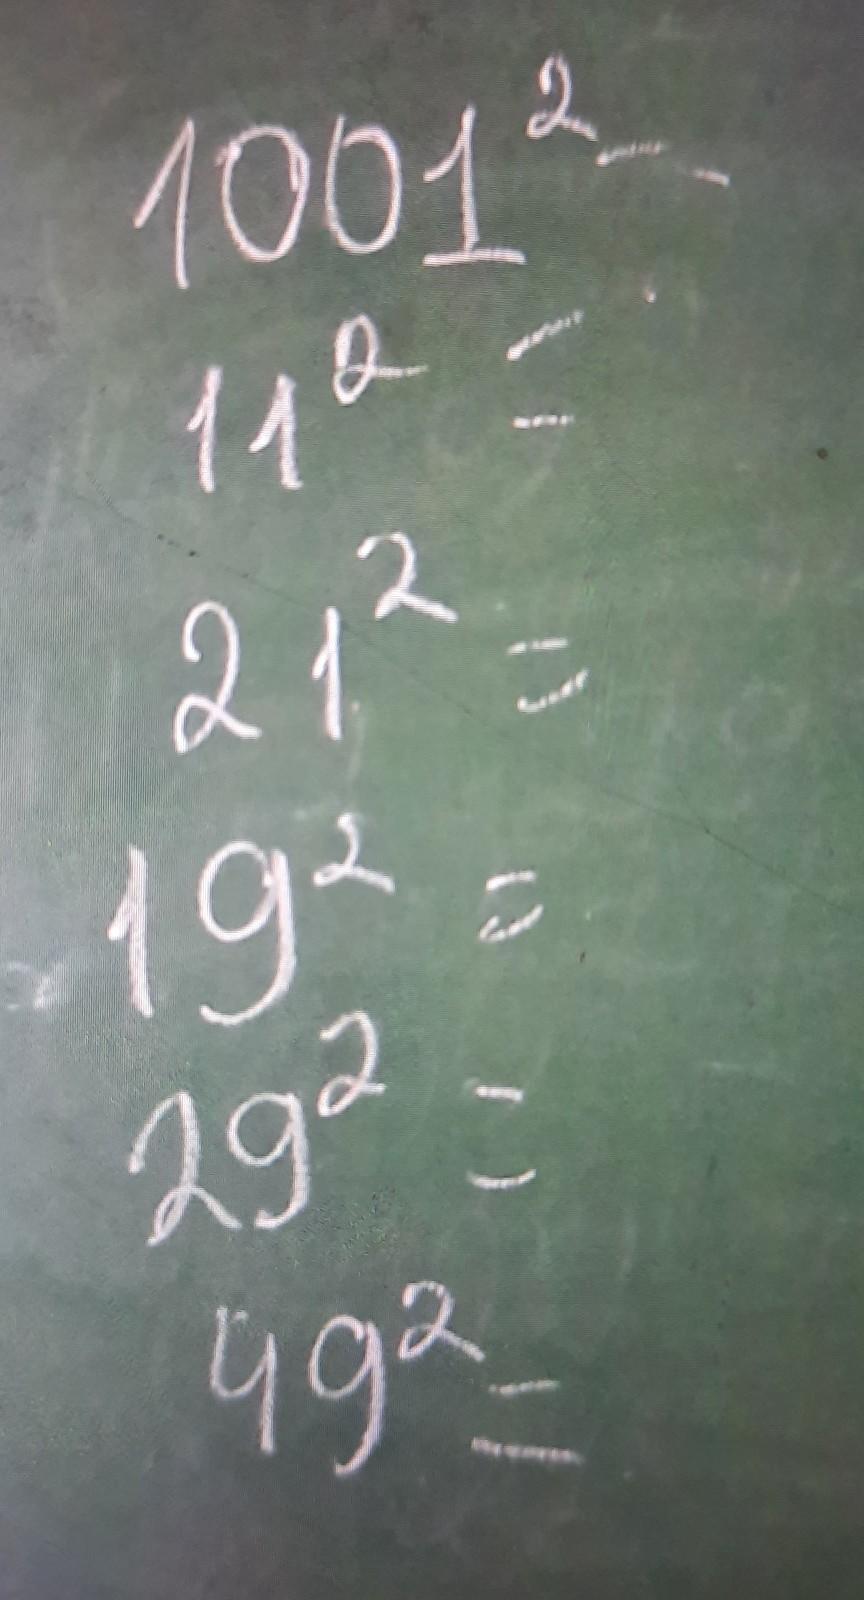 1001² =
11² =
21² =
19² =
29² =
49² =